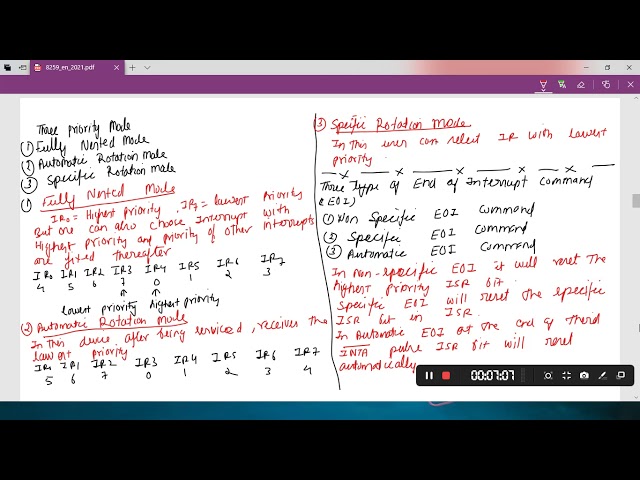 8259_en_2021.pdf
Three Priority Mode
① Fully Nested Mode
② Automatic Rotation Mode
③ Specific Rotation mode
① Fully Nested Mode
IR0 = Highest priority, IR7 = lowest Priority
But one can also choose Interrupt with
Highest priority and priority of other interrupts
are fixed thereafter
IR0 IR1 IR2 IR3 IR4 IR5 IR6 IR7
4 5 6 7 0 1 2 3
↑ ↑
lowest priority highest priority
② Automatic Rotation mode
In this device after being serviced, receives the
lowest priority
IR0 IR1 IR2 IR3 IR4 IR5 IR6 IR7
5 6 7 0 1 2 3 4
③ Specific Rotation Mode
In this user can select IR with lowest
priority
Three Type of End of Interrupt Command
(EOI)
① Non Specific EOI Command
② Specific EOI Command
③ Automatic EOI Command
In Non-specific EOI it will reset the
highest priority ISR bit.
Specific EOI will reset the specific
ISR bit in ISR.
In Automatic EOI at the end of third
INTA pulse ISR bit will reset
automatically
00:07:07